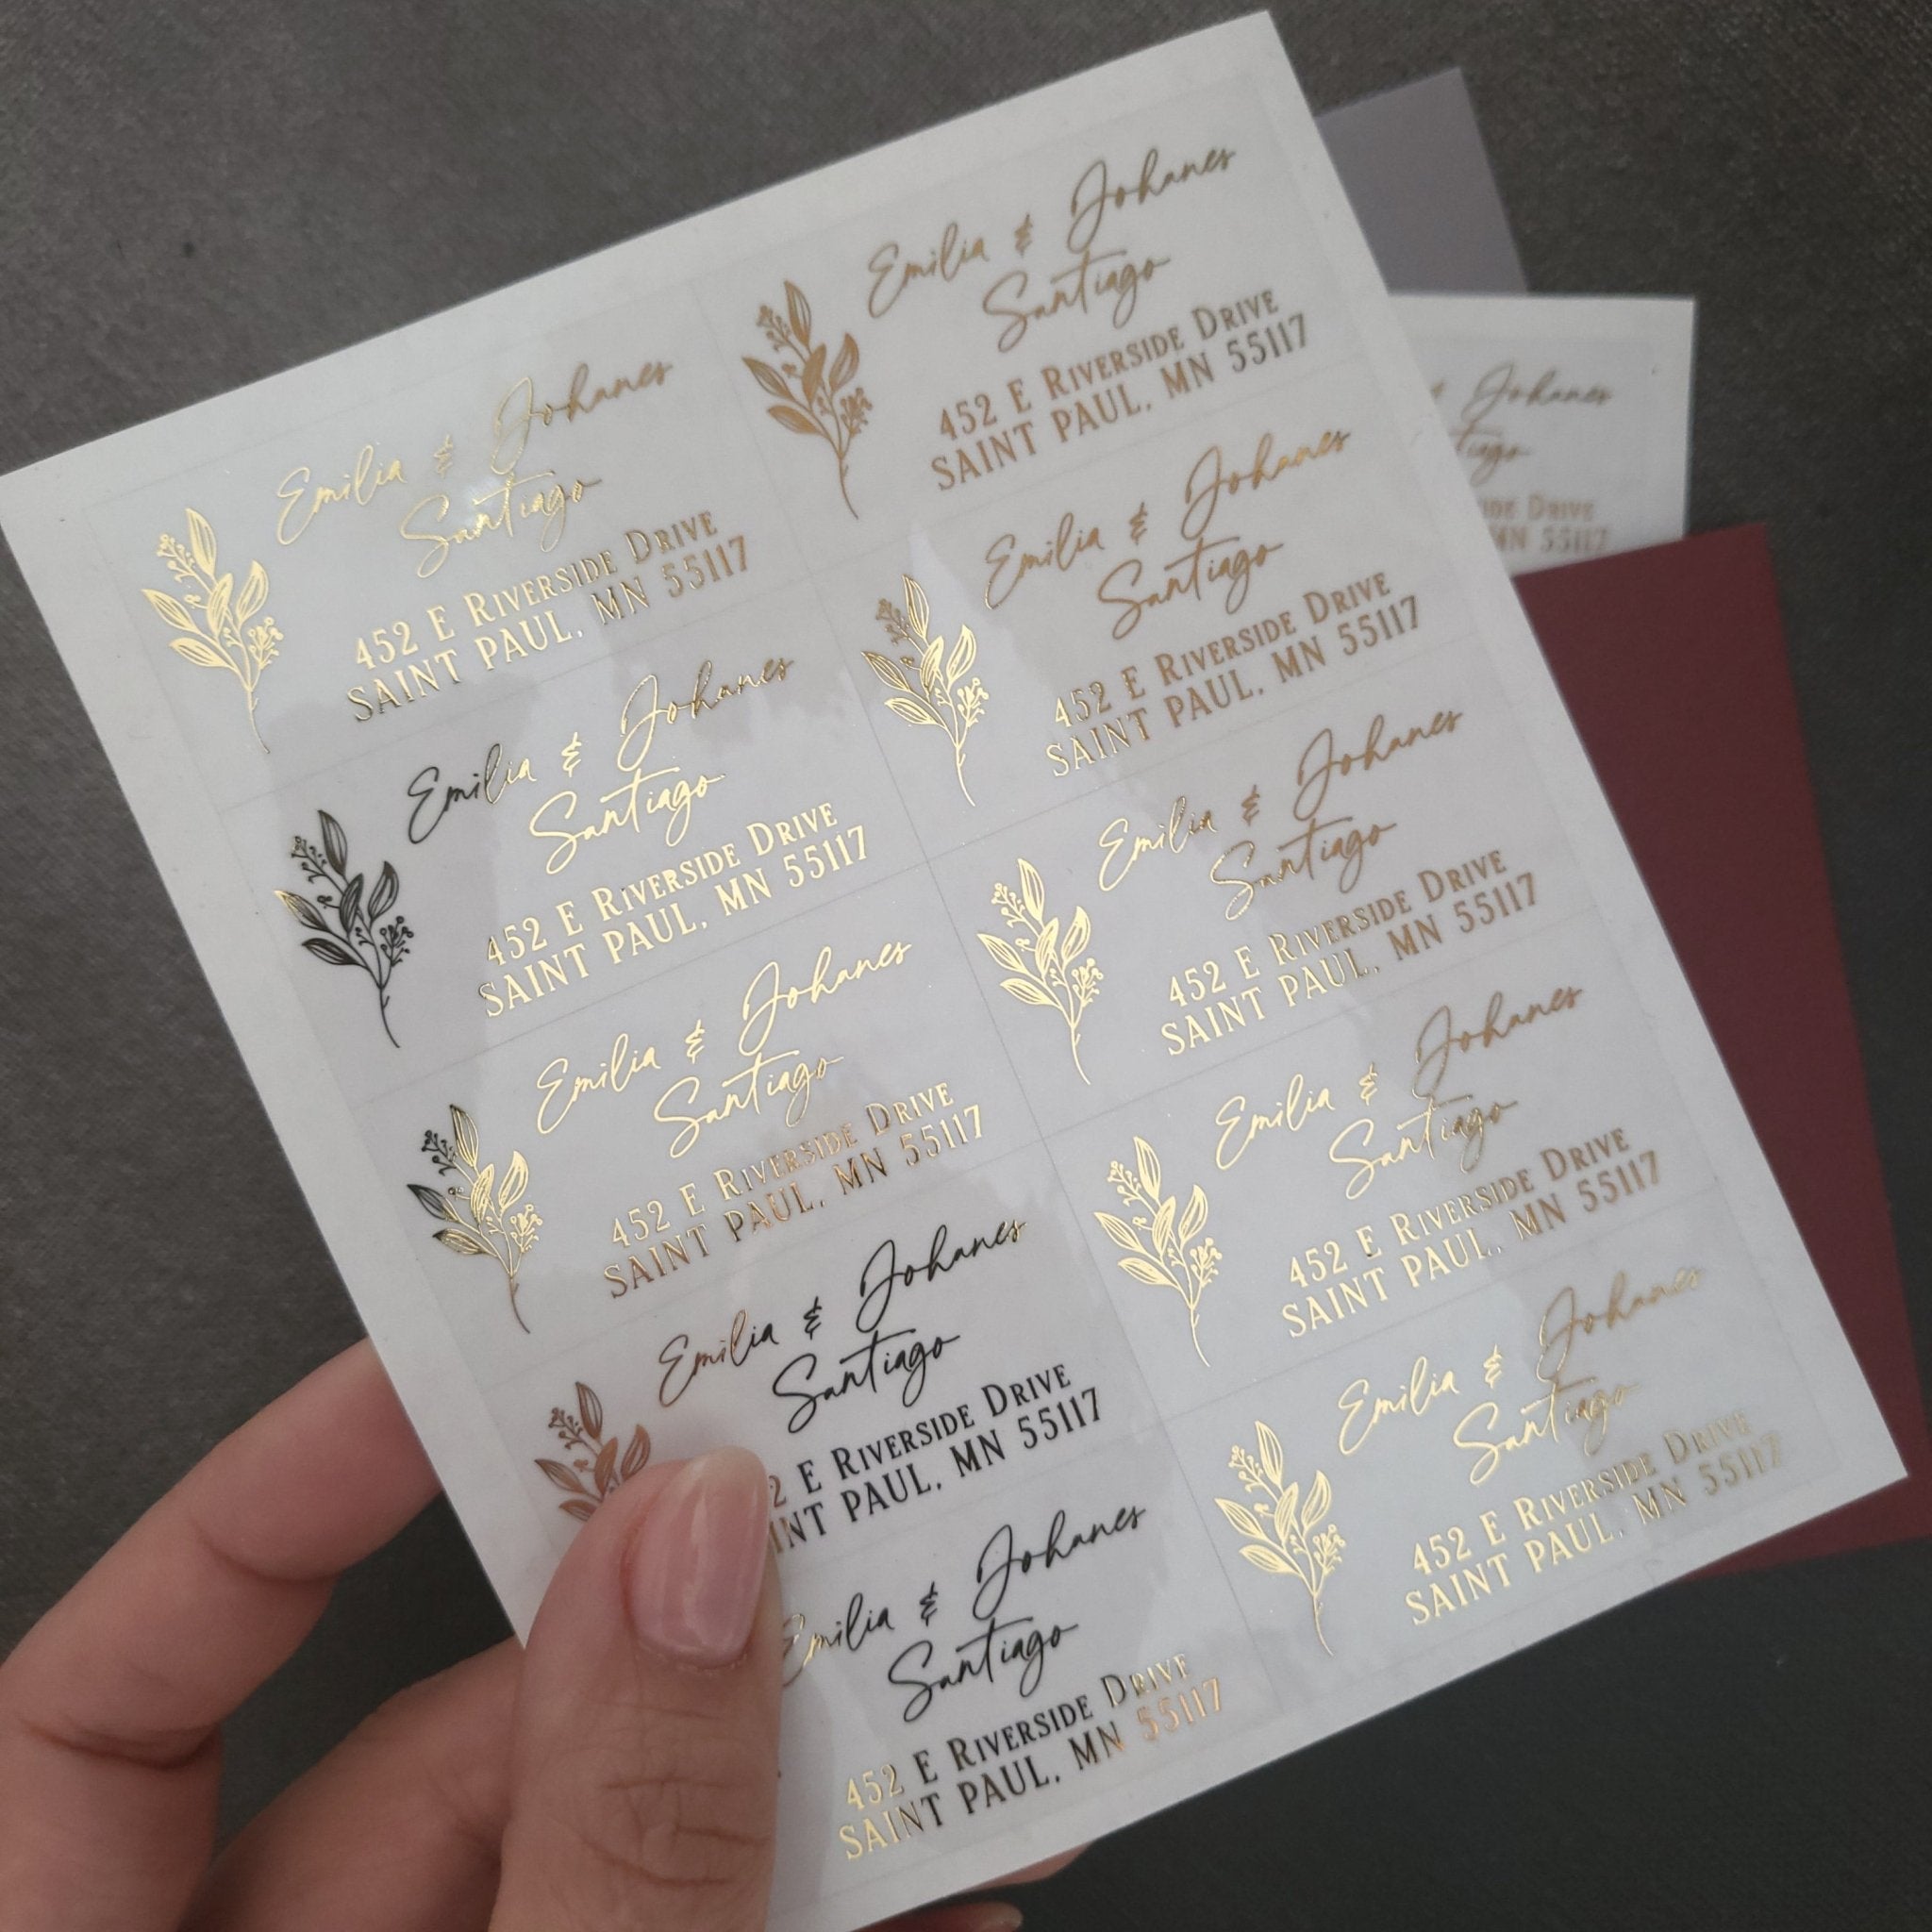 Emilia & Johanes
Santiago
452 E Riverside Drive
SAINT PAUL, MN 55117
Emilia & Johanes
Santiago
452 E Riverside Drive
SAINT PAUL, MN 55117
Emilia & Johanes
Santiago
452 E Riverside Drive
SAINT PAUL, MN 55117
Emilia & Johanes
Santiago
452 E Riverside Drive
SAINT PAUL, MN 55117
Emilia & Johanes
Santiago
452 E Riverside Drive
SAINT PAUL, MN 55117
Emilia & Johanes
Santiago
452 E Riverside Drive
SAINT PAUL, MN 55117
Emilia & Johanes
Santiago
2 E Riverside Drive
INT PAUL, MN 55117
Emilia & Johanes
Santiago
452 E Riverside Drive
SAINT PAUL, MN 55117
Emilia & Johanes
Santiago
452 E Riverside Drive
SAINT PAUL, MN 55117
Emilia & Johanes
Santiago
452 E Riverside Drive
SAINT PAUL, MN 55117
Johanes
tiago
ide Drive
MN 55117